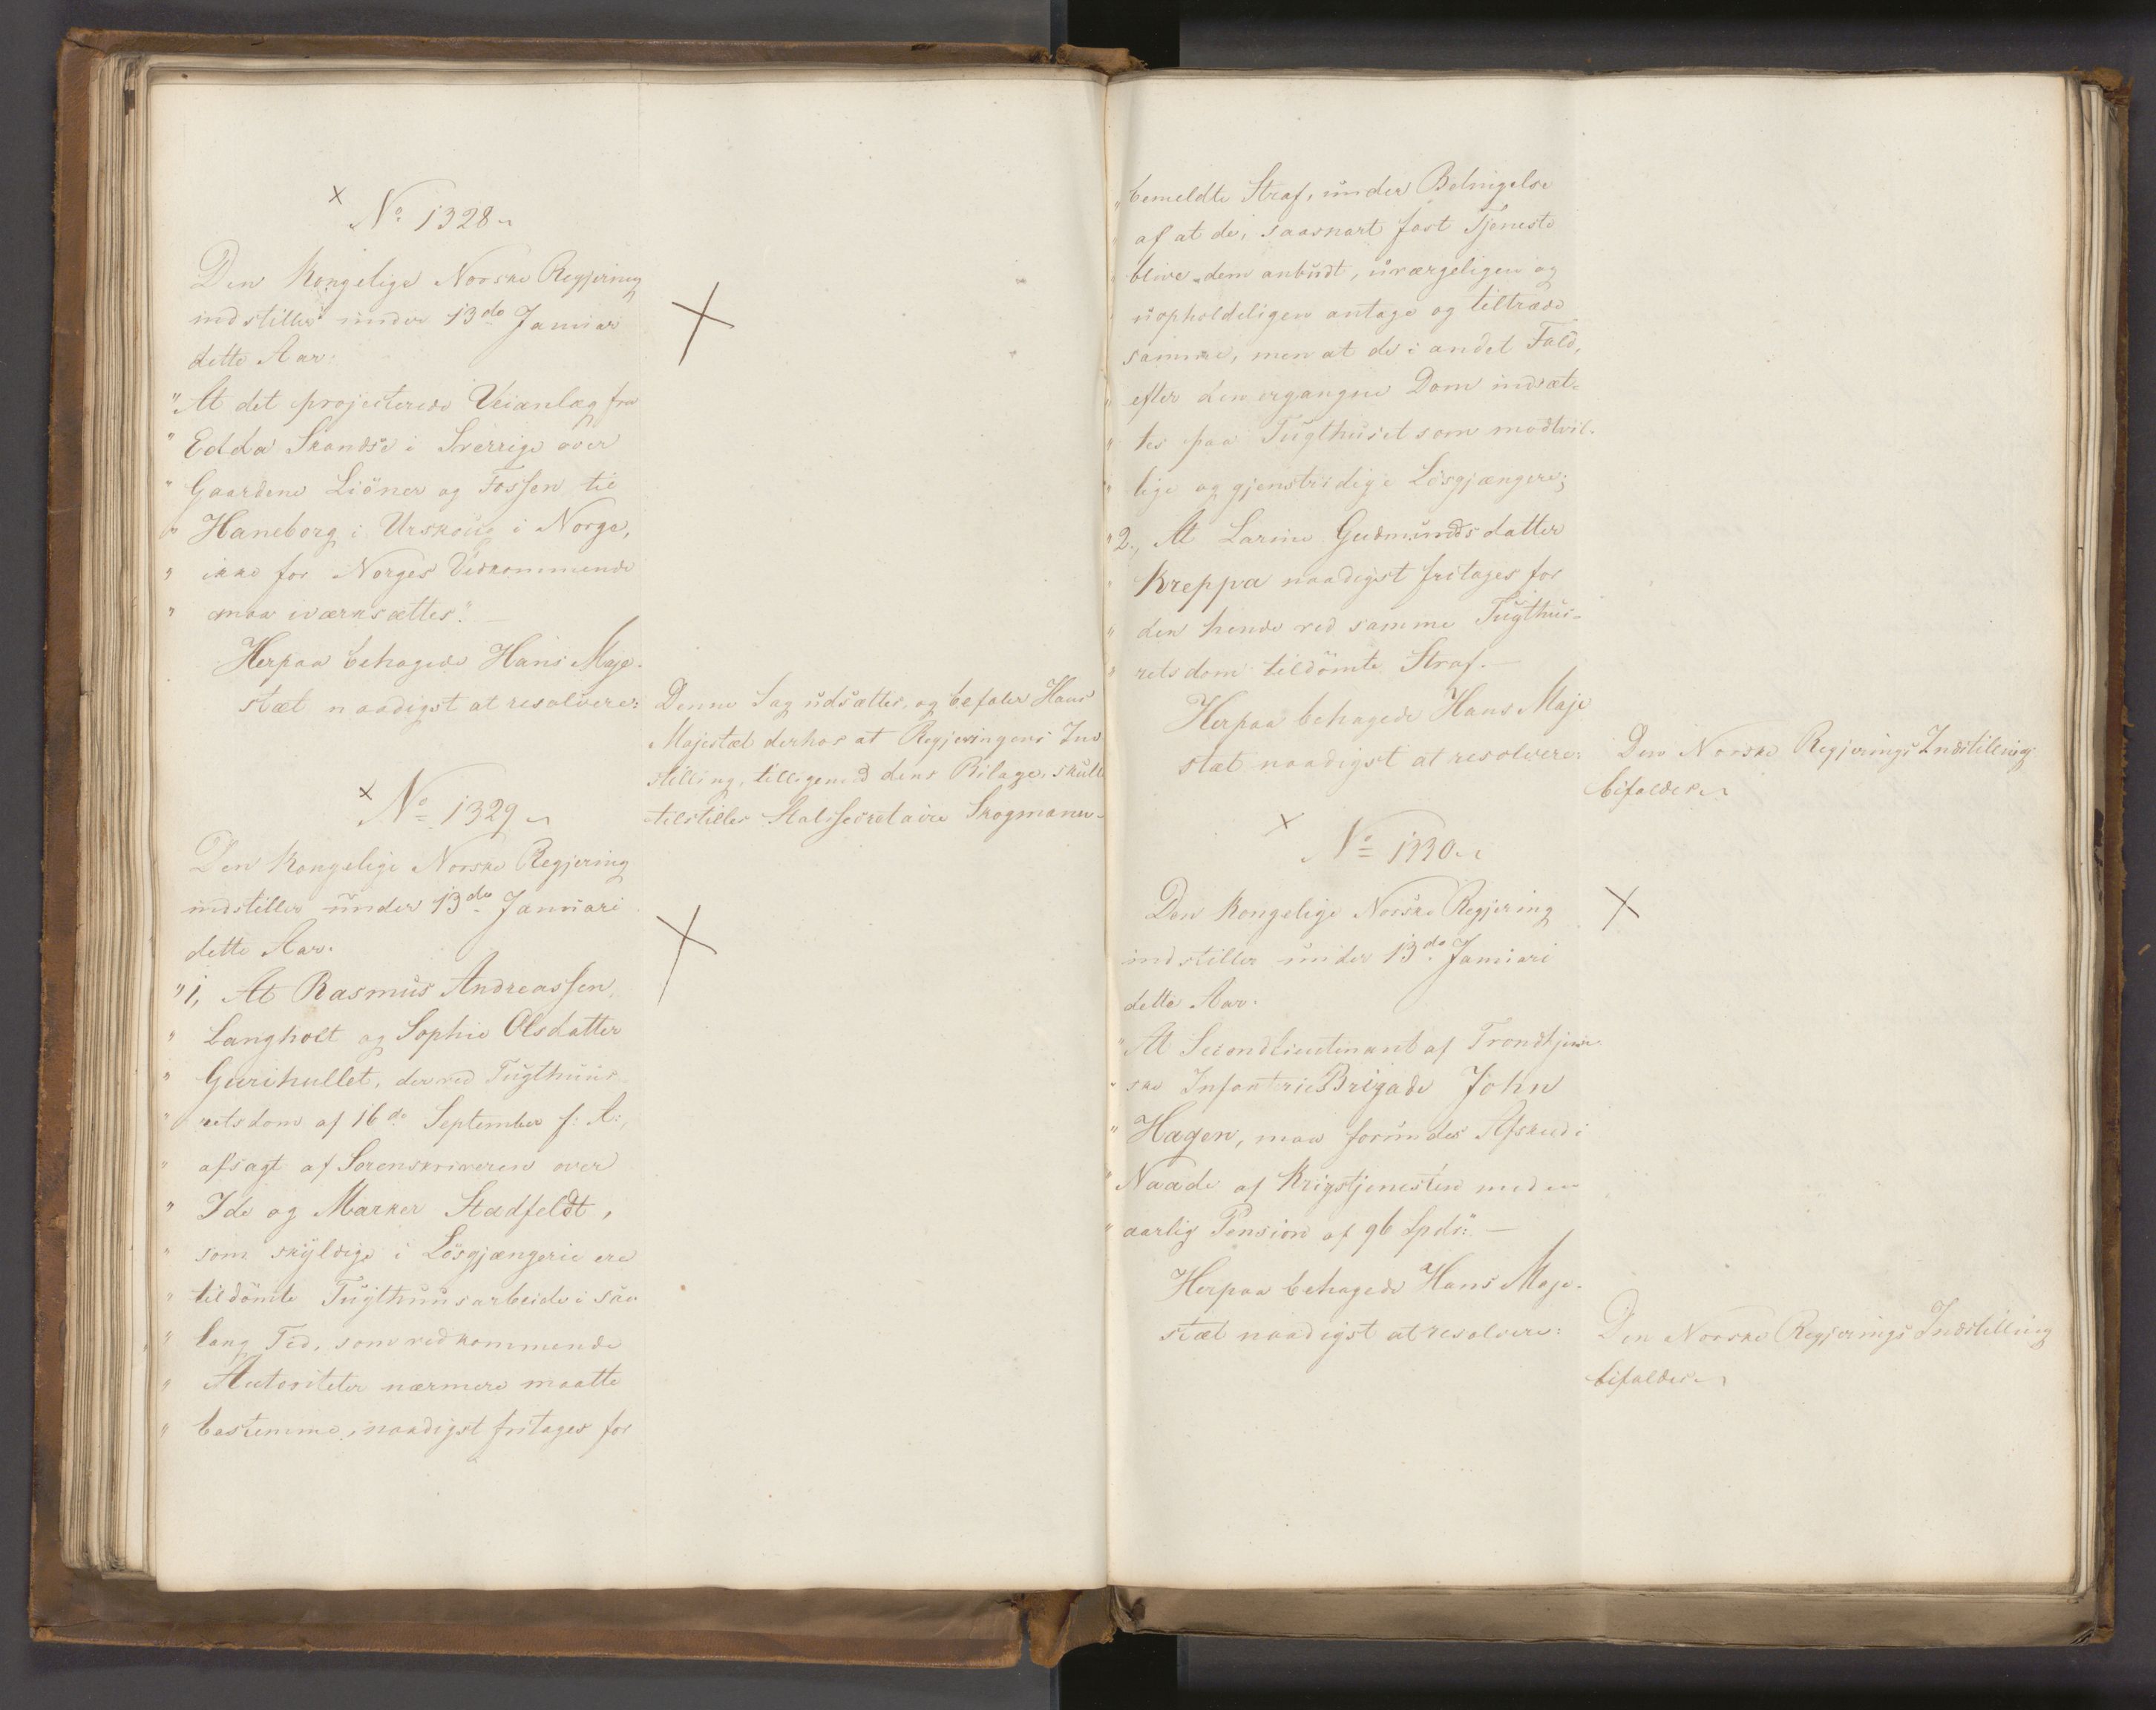 No 1328
Den Kongelige Norske Regjering
indstiller under 13de Januar
dette Aar:
"At det projecterede Veianlæg fra
" Edda Skandse i Sverrige over
" Gaardene Liöner og Fossen til
" Haneborg i Urskoug i Norge,
" ikke for Norges Vedkommende
" maa iværksættes".
Herpaa behagede Hans Maje-
stæt naadigst at resolvere:
Denne Sag udsættes, og befaler Hans
Majestæt derhos at Regjeringens Ind
stilling, tilligemed dens Bilage, skulle
tilstilles Statssecretaire Skogman
No 1329
Den Kongelige Norske Regjering
indstiller under 13de Januari
dette Aar.
"1, At Rasmus Andreassen
" Langholt og Sophie Olsdatter
" Gurihullet, der ved Tugthuus
" retsdom af 16de September f: A:,
" afsagt af Sorenskriveren over
" Ide og Marker Stadfeldt,
" som skyldige i Lösgjængerie ere
" tildömte Tugthuusarbeide i saa
" lang Tid, som vedkommende
" Autoriteter nærmere maatte
" bestemme, naadigst fritages for
" bemeldte Straf, under Betingelse
" af at de, saasnart fast Tjeneste
" bliver dem anbudt, uværgeligen og
" uopholdeligen antage og tiltræde
samme, men at de i andet Fald,
" efter den ergangne Dom indsæt-
" tes paa Tugthuset som modvil-
" lige og gjenstridige Lösgjængere;
"2., At Larine Gudmundsdatter
" Kreppa naadigst fritages for
" den hende ved samme Tugthus-
" retsdom tildömte Straf. —
Herpaa behagede Hans Maje
stæt naadigst at resolvere:
Den Norske Regjerings Indstilling
bifaldes
No 1330
Den Kongelige Norske Regjering
indstiller under 13de Januari
dette Aar.
"At Secondlieutenant af Trondhjem-
" ske Infanterie Brigade John
" Hagen, maa forundes Afskeed i
" Naade af Krigstjenesten med en
" aarlig Pension af 96 Spd". —
Herpaa behagede Hans Maje-
stæt naadigst at resolvere:
Den Norske Regjerings Indstilling
bifaldes